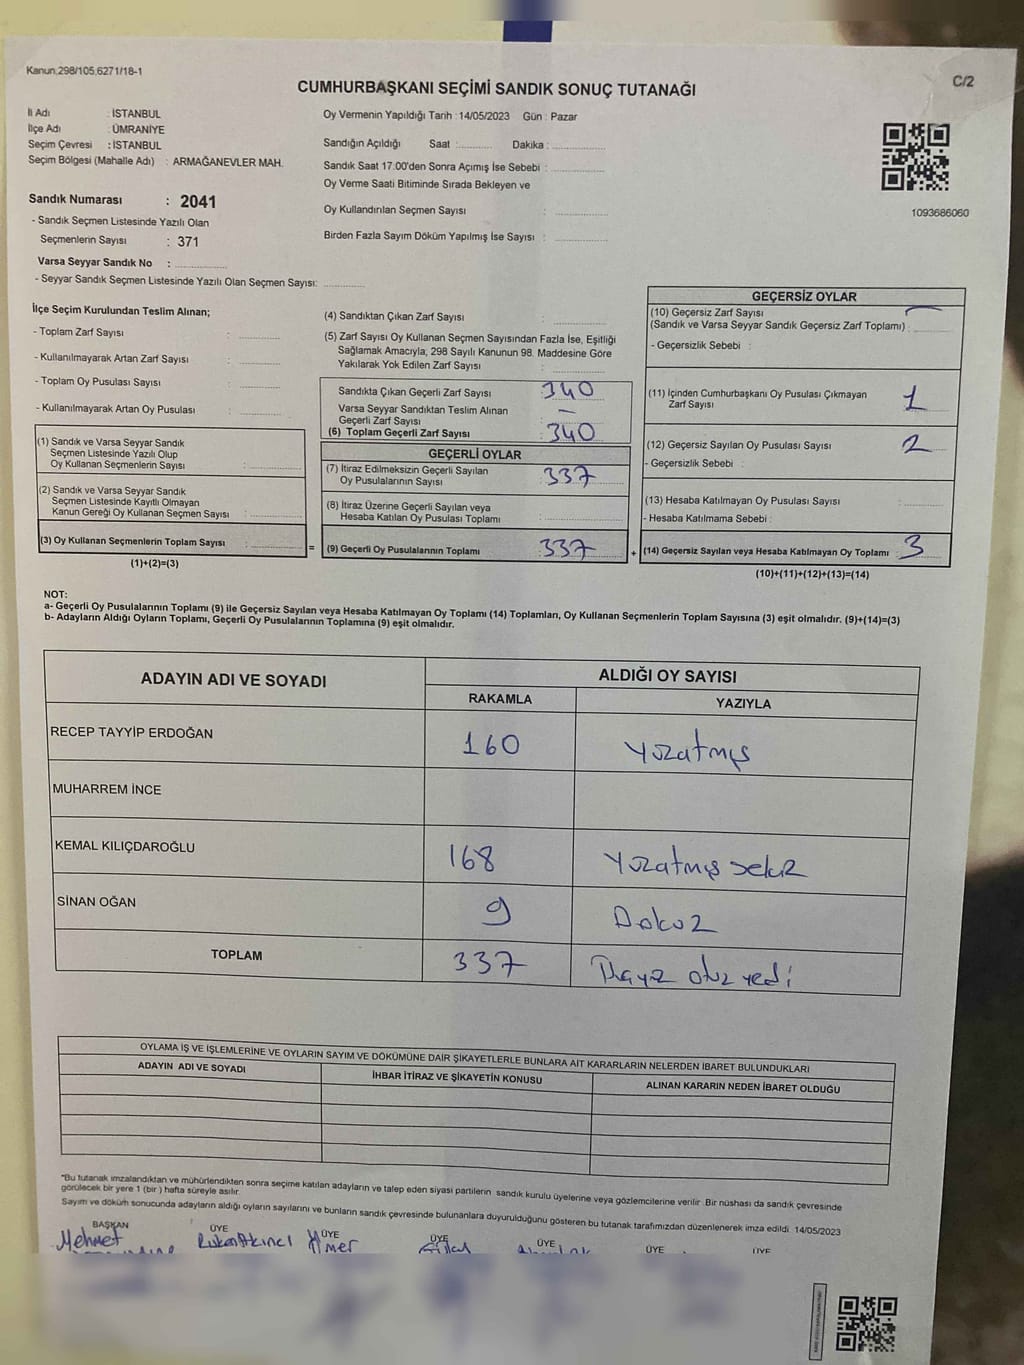 Kanun:298/105,6271/18-1
C/2
CUMHURBAŞKANI SEÇİMİ SANDIK SONUÇ TUTANAĞI
İl Adı : İSTANBUL
İlçe Adı : ÜMRANİYE
Seçim Çevresi : İSTANBUL
Seçim Bölgesi (Mahalle Adı) : ARMAĞANEVLER MAH.
Sandık Numarası : 2041
- Sandık Seçmen Listesinde Yazılı Olan
Seçmenlerin Sayısı : 371
Varsa Seyyar Sandık No :
- Seyyar Sandık Seçmen Listesinde Yazılı Olan Seçmen Sayısı:
Oy Vermenin Yapıldığı Tarih : 14/05/2023 Gün : Pazar
Sandığın Açıldığı Saat : Dakika :
Sandık Saat 17.00'den Sonra Açımış İse Sebebi :
Oy Verme Saati Bitiminde Sırada Bekleyen ve
Oy Kullandırılan Seçmen Sayısı :
Birden Fazla Sayım Döküm Yapılmış İse Sayısı :
1093686060
İlçe Seçim Kurulundan Teslim Alınan;
- Toplam Zarf Sayısı :
- Kullanılmayarak Artan Zarf Sayısı :
- Toplam Oy Pusulası Sayısı :
- Kullanılmayarak Artan Oy Pusulası :
(1) Sandık ve Varsa Seyyar Sandık
Seçmen Listesinde Yazılı Olup
Oy Kullanan Seçmenlerin Sayısı :
(2) Sandık ve Varsa Seyyar Sandık
Seçmen Listesinde Kayıtlı Olmayan
Kanun Gereği Oy Kullanan Seçmen Sayısı :
(3) Oy Kullanan Seçmenlerin Toplam Sayısı :
(1)+(2)=(3)
(4) Sandıktan Çıkan Zarf Sayısı :
(5) Zarf Sayısı Oy Kullanan Seçmen Sayısından Fazla İse, Eşitliği
Sağlamak Amacıyla; 298 Sayılı Kanunun 98. Maddesine Göre
Yakılarak Yok Edilen Zarf Sayısı :
Sandıkta Çıkan Geçerli Zarf Sayısı : 340
Varsa Seyyar Sandıktan Teslim Alınan
Geçerli Zarf Sayısı : –
(6) Toplam Geçerli Zarf Sayısı : 340
GEÇERLİ OYLAR
(7) İtiraz Edilmeksizin Geçerli Sayılan
Oy Pusulalarının Sayısı : 337
(8) İtiraz Üzerine Geçerli Sayılan veya
Hesaba Katılan Oy Pusulası Toplamı :
= (9) Geçerli Oy Pusulalarının Toplamı : 337
GEÇERSİZ OYLAR
(10) Geçersiz Zarf Sayısı
(Sandık ve Varsa Seyyar Sandık Geçersiz Zarf Toplamı) :
- Geçersizlik Sebebi :
(11) İçinden Cumhurbaşkanı Oy Pusulası Çıkmayan
Zarf Sayısı 1
(12) Geçersiz Sayılan Oy Pusulası Sayısı 2
- Geçersizlik Sebebi :
(13) Hesaba Katılmayan Oy Pusulası Sayısı
- Hesaba Katılmama Sebebi :
+ (14) Geçersiz Sayılan veya Hesaba Katılmayan Oy Toplamı 3
(10)+(11)+(12)+(13)=(14)
NOT:
a- Geçerli Oy Pusulalarının Toplamı (9) ile Geçersiz Sayılan veya Hesaba Katılmayan Oy Toplamı (14) Toplamları, Oy Kullanan Seçmenlerin Toplam Sayısına (3) eşit olmalıdır. (9)+(14)=(3)
b- Adayların Aldığı Oyların Toplamı, Geçerli Oy Pusulalarının Toplamına (9) eşit olmalıdır.
ADAYIN ADI VE SOYADI
ALDIĞI OY SAYISI
RAKAMLA YAZIYLA
RECEP TAYYİP ERDOĞAN 160 Yüzatmış
MUHARREM İNCE
KEMAL KILIÇDAROĞLU 168 Yüzatmış sekiz
SİNAN OĞAN 9 Dokuz
TOPLAM 337 otuz yedi
OYLAMA İŞ VE İŞLEMLERİNE VE OYLARIN SAYIM VE DÖKÜMÜNE DAİR ŞİKAYETLERLE BUNLARA AİT KARARLARIN NELERDEN İBARET BULUNDUKLARI
ADAYIN ADI VE SOYADI İHBAR İTİRAZ VE ŞİKAYETİN KONUSU ALINAN KARARIN NEDEN İBARET OLDUĞU
*Bu tutanak imzalandıktan ve mühürlendikten sonra seçime katılan adayların ve talep eden siyasi partilerin sandık kurulu üyelerine veya gözlemcilerine verilir. Bir nüshası da sandık çevresinde
görülecek bir yere 1 (bir) hafta süreyle asılır.
Sayım ve döküm sonucunda adayların aldığı oyların sayılarını ve bunların sandık çevresinde bulunanlara duyurulduğunu gösteren bu tutanak tarafımızdan düzenlenerek imza edildi. 14/05/2023
BAŞKAN ÜYE ÜYE ÜYE ÜYE ÜYE ÜYE
Mehmet